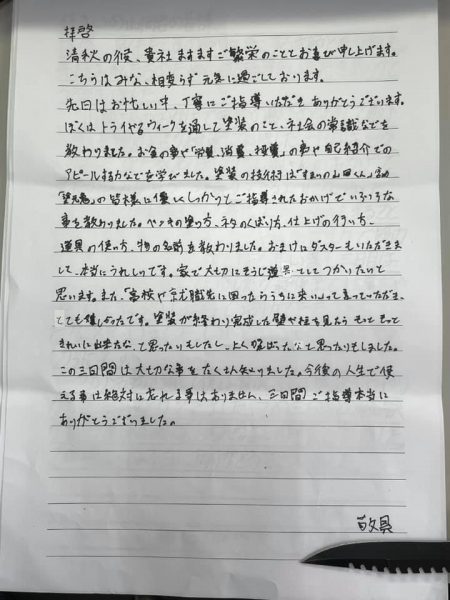 拝啓
清秋の候、貴社ますますご繁栄のこととお喜び申し上げます。
こちらはみな、相変らず元気に過ごしております。
先日はお忙しい中、丁寧にご指導いただきありがとうございます。
ぼくはトライやるウィークを通して塗装のこと、社会の常識などを
教わりました。お金の事や「労費、消費、浪費」の事や自己紹介での
アピールする力などを学びました。塗装の技術は
の皆様に優しくしっかりとご指導されたおかげでいろいろな
事を教わりました。ペンキの塗り方、ネタのくばり方、仕上げの行い方、
道具の使い方、物の名前を教わりました。おまけにダスターもいただきま
して、本当にうれしいです。家で大切にそうじ道具としてつかいたいと
思います。また、「高校や就職先に困ったらうちに来い」って言っていただき、
とても嬉しかったです。塗装が終わり完成した壁や柱を見たらもっともっと
きれいに出来たな、て思ったりもしたし、よく頑ばったなて思ったりもしました。
この三日間は大切な事をたくさん知りました。今後の人生で使
える事は絶対に忘れる事はありません、三日間ご指導本当に
ありがとうございました。
敬具